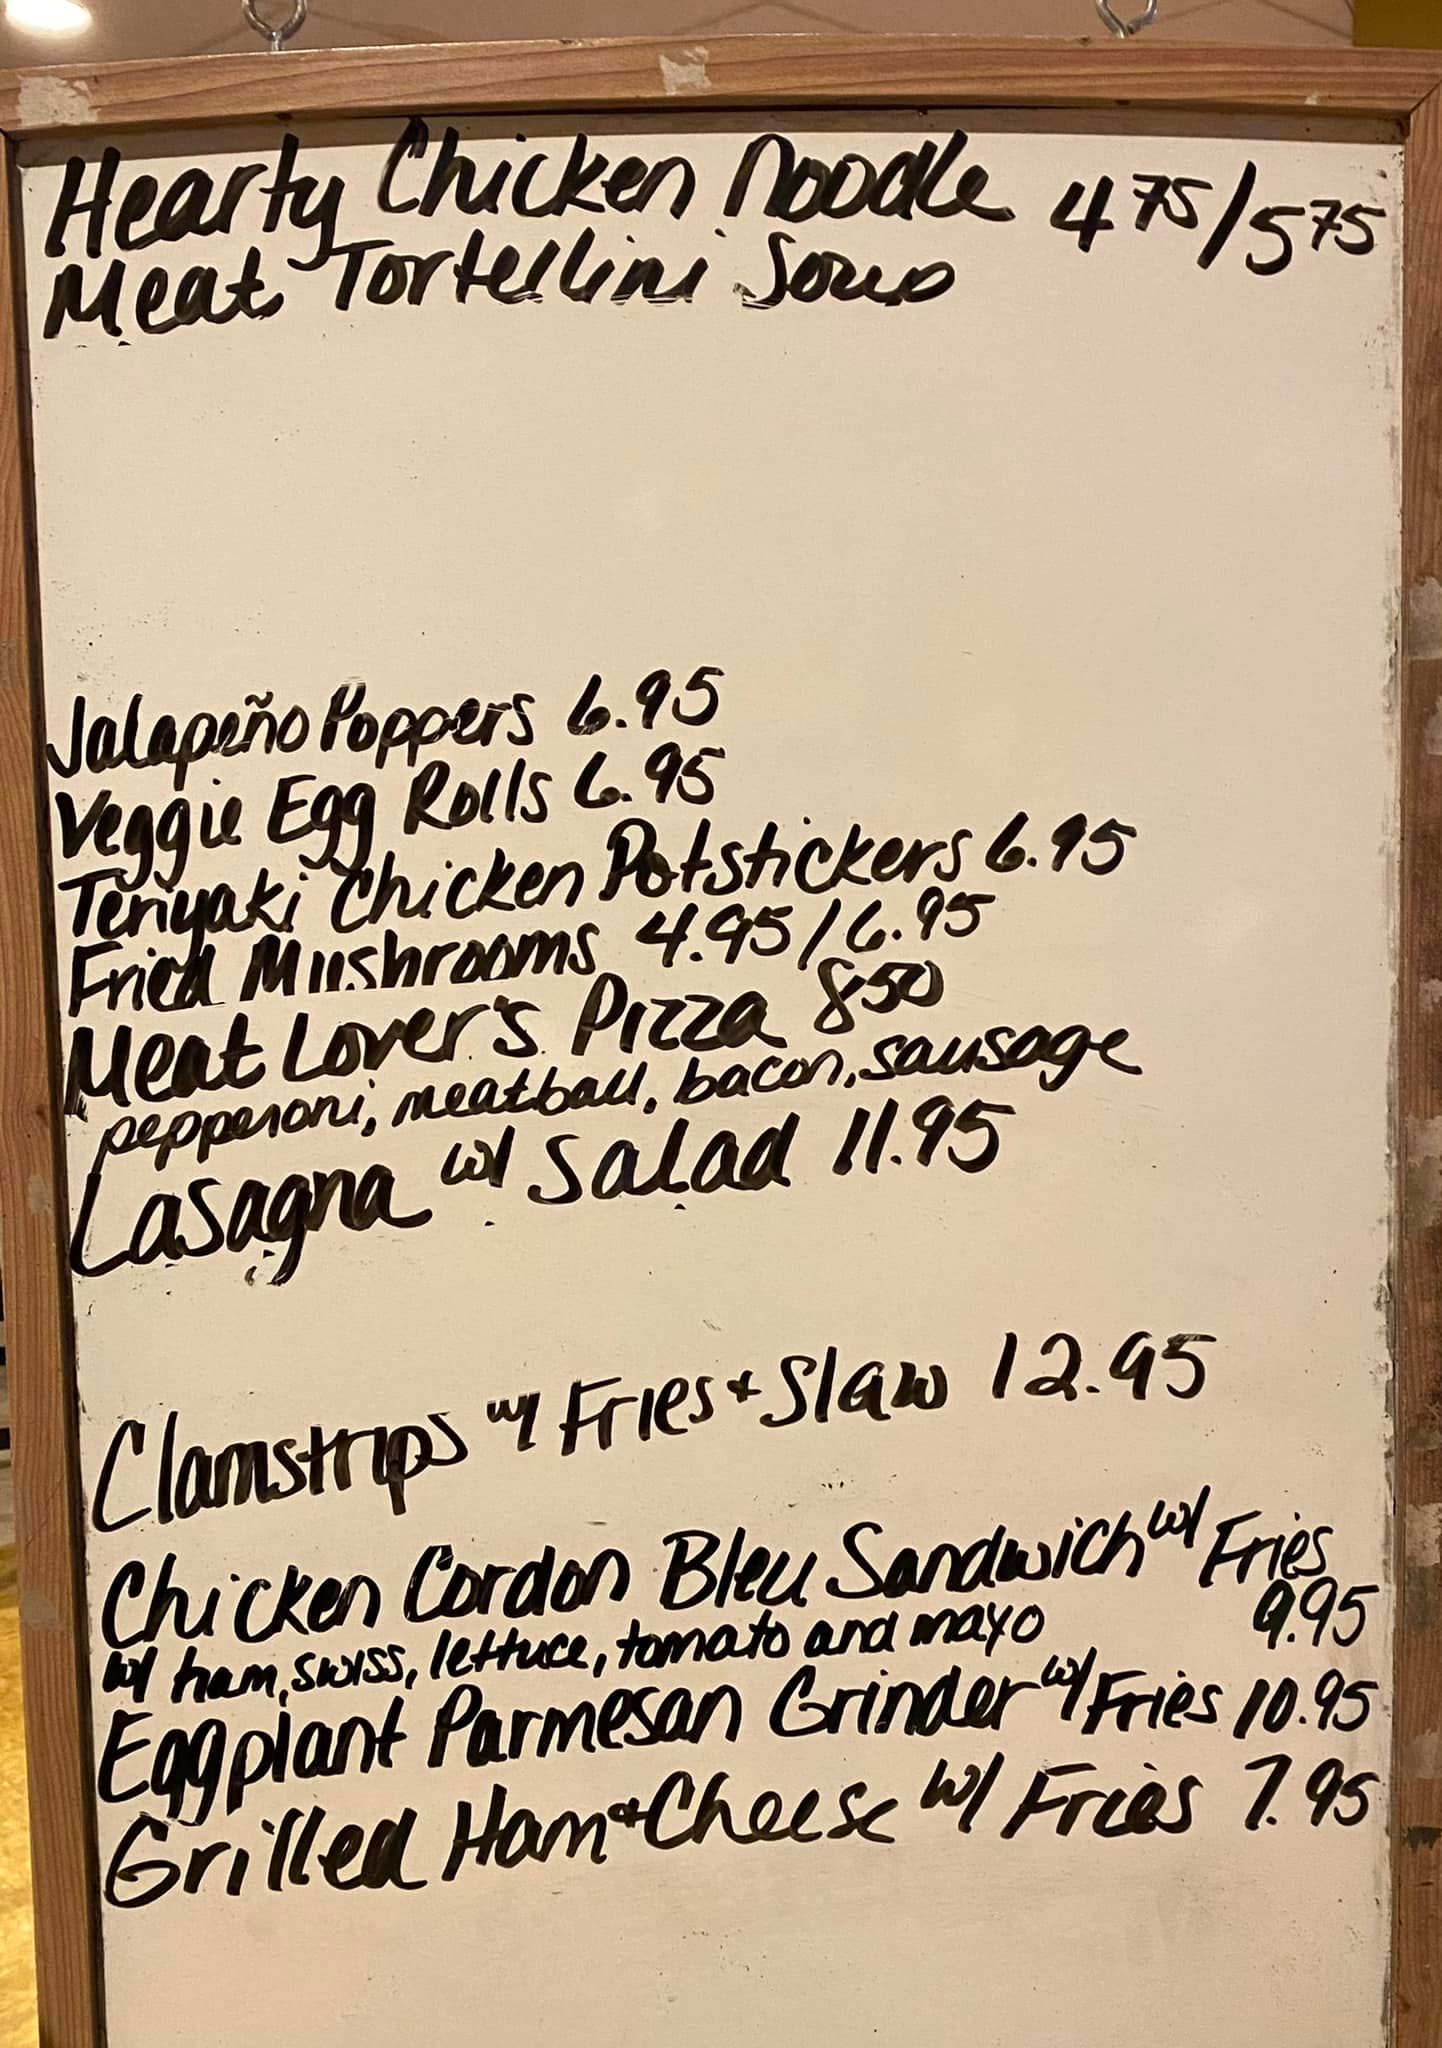 Hearty Chicken Noodle 4 75/5 75
Meat Tortellini Soup
Jalapeño Poppers 6.95
Veggie Egg Rolls 6.95
Teriyaki Chicken Potstickers 6.95
Fried Mushrooms 4.95/6.95
Meat Lover's Pizza 8 50
pepperoni, meatball, bacon, sausage
Lasagna w/ Salad 11.95
Clamstrips w/ Fries + Slaw 12.95
Chicken Cordon Bleu Sandwich w/ Fries
w/ ham, swiss, lettuce, tomato and mayo 9.95
Eggplant Parmesan Grinder w/ Fries 10.95
Grilled Ham + Cheese w/ Fries 7.95